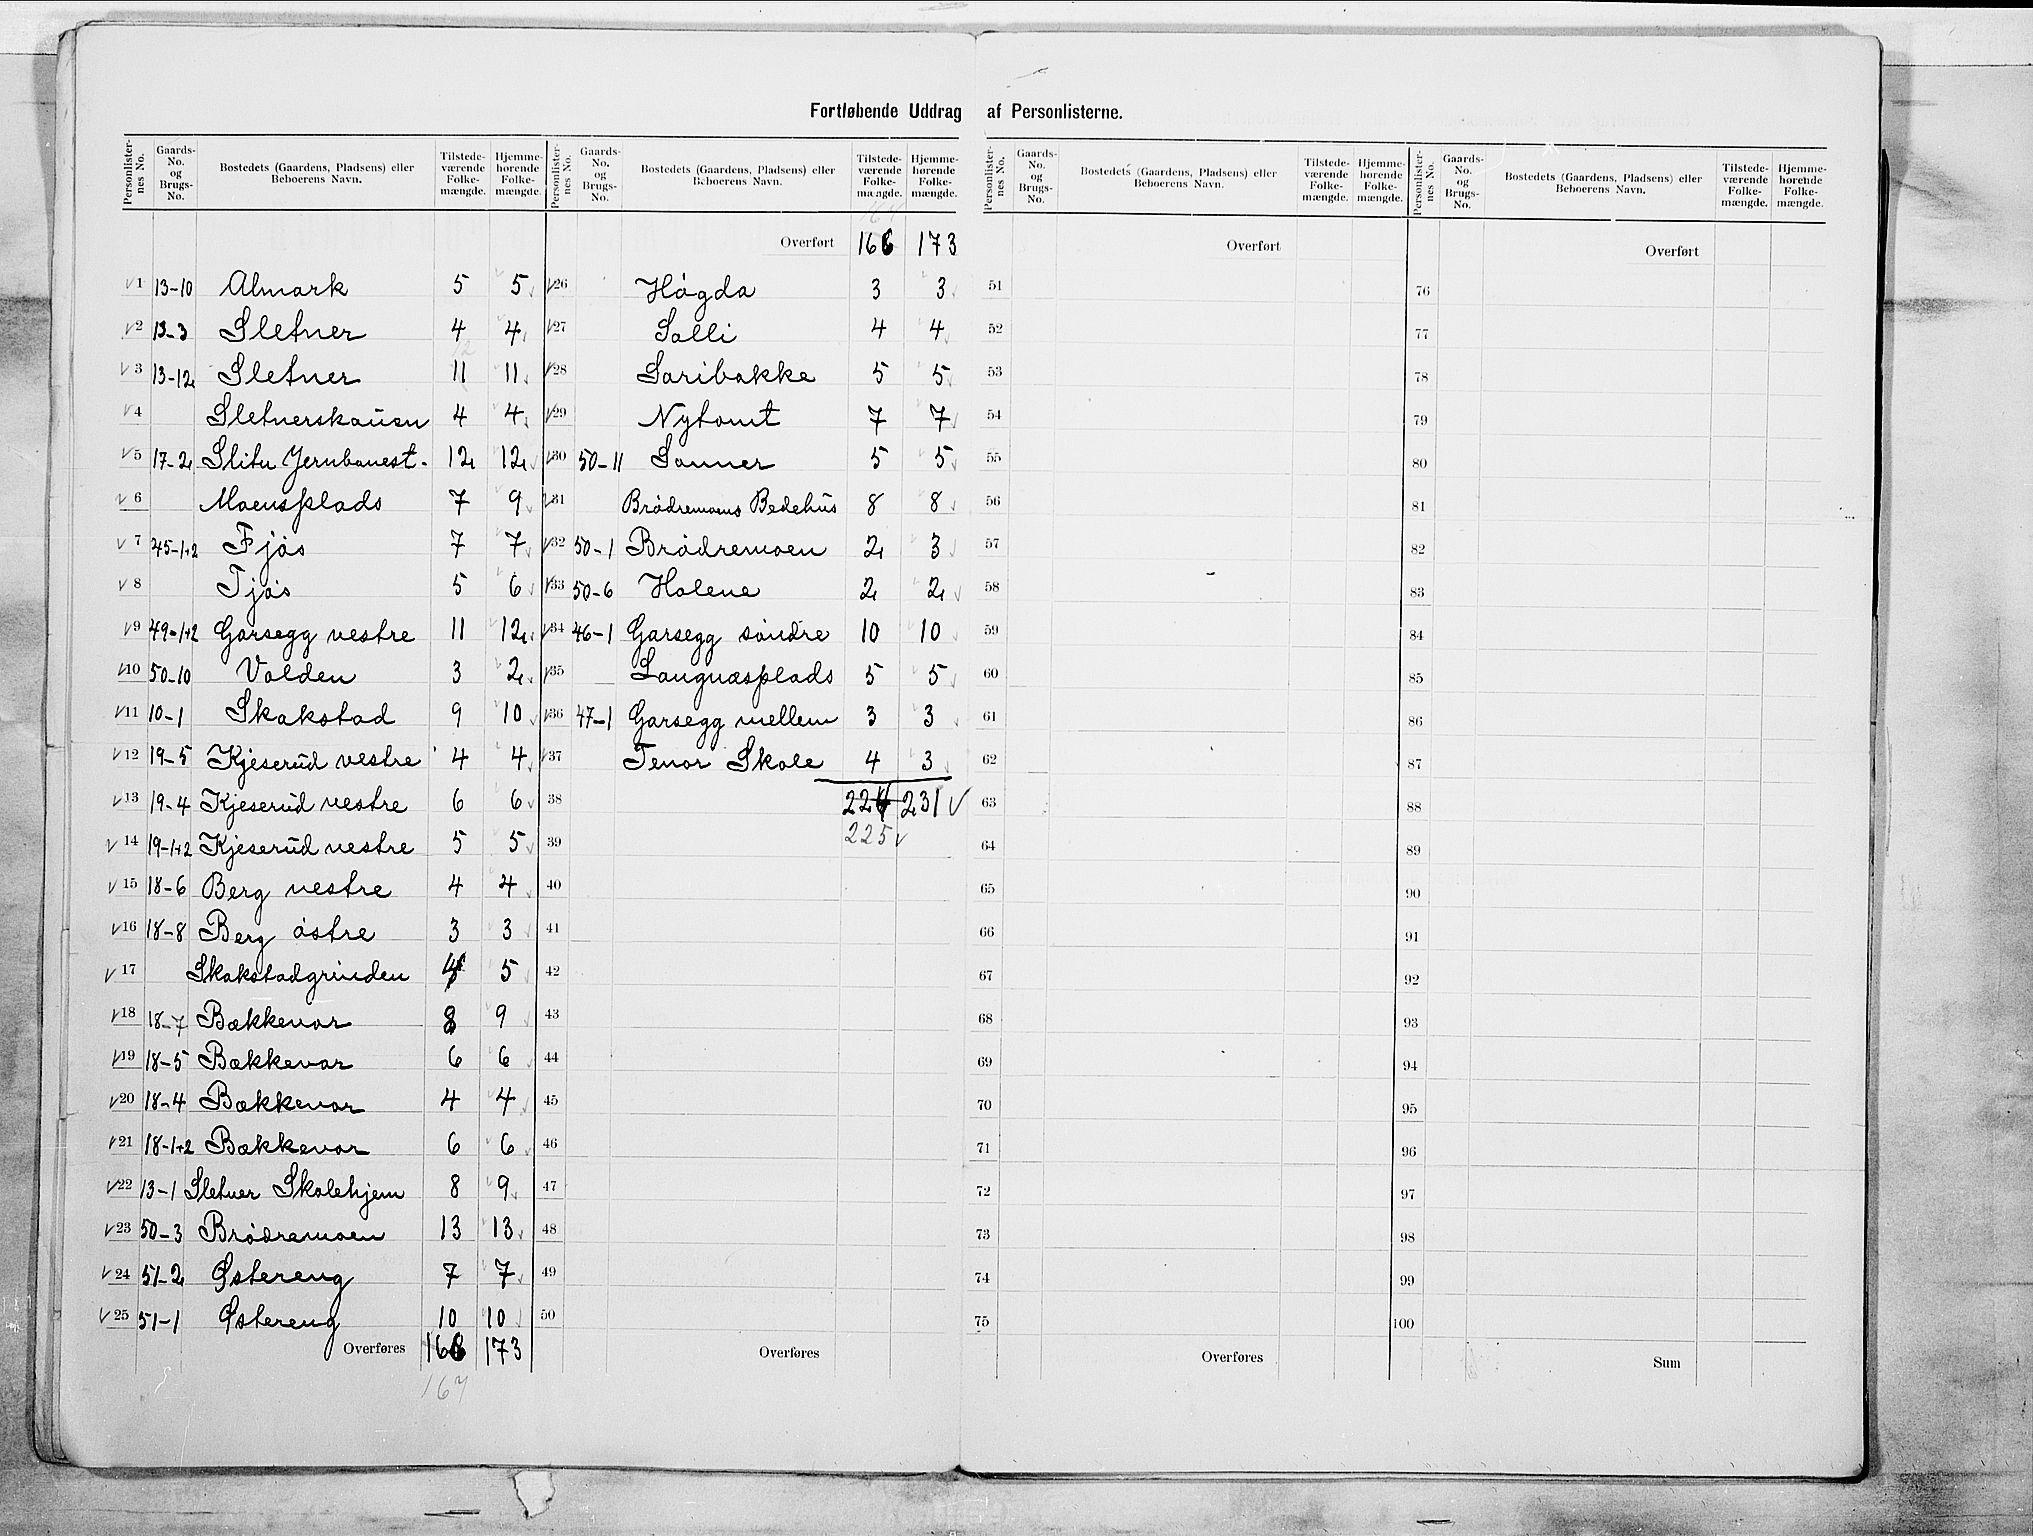 Fortløbende Uddrag af Personlisterne.
Personlisternes No. Gaards-No. og Brugs-No. Bostedets (Gaardens, Pladsens) eller Beboerens Navn. Tilstedeværende Folkemængde. Hjemmehørende Folkemængde.
1 13-10 Almark 5 5
2 13-3 Sletner 4 4
3 13-12 Sletner 11 11
4 Sletnerskauen 4 4
5 17-2 Slitu Jernbanest. 12 12
6 Moensplads 7 9
7 45-1+2 Fjøs 7 7
8 Fjøs 5 6
9 49-1+2 Garsegg vestre 11 12
10 50-10 Volden 3 2
11 10-1 Skakstad 9 10
12 19-5 Kjeserud vestre 4 4
13 19-4 Kjeserud vestre 6 6
14 19-1+2 Kjeserud vestre 5 5
15 18-6 Berg vestre 4 4
16 18-8 Berg østre 3 3
17 Skakstadgrinden 5
18 18-7 Bækkevar 8 9
19 18-5 Bækkevar 6 6
20 18-4 Bækkevar 4 4
21 18-1+2 Bækkevar 6 6
22 13-1 Sletner Skolehjem 8 9
23 50-3 Brødremoen 13 13
24 51-2 Østereng 7 7
25 51-1 Østereng 10 10
Overføres 166 173
167
Personlisternes No. Gaards-No. og Brugs-No. Bostedets (Gaardens, Pladsens) eller Beboerens Navn. Tilstedeværende Folkemængde. Hjemmehørende Folkemængde.
167
Overført 166 173
26 Høgda 3 3
27 Solli 4 4
28 Saribakke 5 5
29 Nytomt 7 7
30 50-11 Sanner 5 5
31 Brødremoens Bedehus 8 8
32 50-1 Brødremoen 2 3
33 50-6 Holene 2 2
34 46-1 Garsegg søndre 10 10
35 Langnæsplads 5 5
36 47-1 Garsegg mellem 3 3
37 Tenor Skole 4 3
38 224 231
39 225
40
41
42
43
44
45
46
47
48
49
50
Overføres
Personlisternes No. Gaards-No. og Brugs-No. Bostedets (Gaardens, Pladsens) eller Beboerens Navn. Tilstedeværende Folkemængde. Hjemmehørende Folkemængde.
Overført
51
52
53
54
55
56
57
58
59
60
61
62
63
64
65
66
67
68
69
70
71
72
73
74
75
Overføres
Personlisternes No. Gaards-No. og Brugs-No. Bostedets (Gaardens, Pladsens) eller Beboerens Navn. Tilstedeværende Folkemængde. Hjemmehørende Folkemængde.
Overført
76
77
78
79
80
81
82
83
84
85
86
87
88
89
90
91
92
93
94
95
96
97
98
99
100
Sum